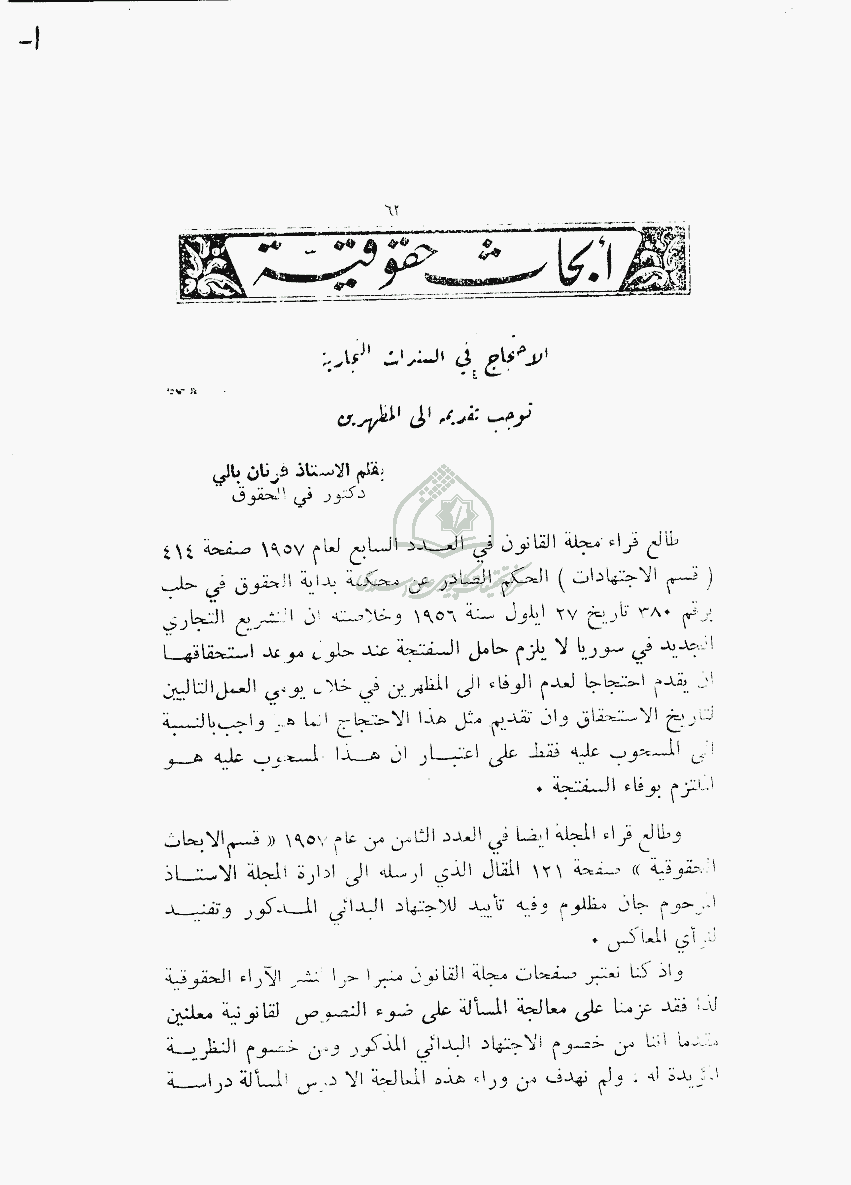 ١-
٦٢
أبحاث حقوقيّة
الاحتجاج في السندات التجارية
توجب تقديمه الى المظهرين
بقلم الاستاذ فرنان بالي
دكتور في الحقوق
طالع قراء مجلة القانون في العـــدد السابع لعام ١٩٥٧ صفحة ٤١٤
( قسم الاجتهادات ) الحكم الصادر عن محكمة بداية الحقوق في حلب
برقم ٣٨٠ تاريخ ٢٧ ايلول سنة ١٩٥٦ وخلاصته ان التشريع التجاري
الجديد في سوريا لا يلزم حامل السفتجة عند حلول موعد استحقاقهـا
ان يقدم احتجاجا لعدم الوفاء الى المظهرين في خلال يومي العمل التاليين
لتاريخ الاستحقاق وان تقديم مثل هذا الاحتجاج انما هو واجب بالنسبة
الى المسحوب عليه فقط على اعتبـار ان هـــذا المسحوب عليه هــو
الملتزم بوفاء السفتجة •
وطالع قراء المجلة ايضا في العدد الثامن من عام ١٩٥٧ « قسم الابحاث
الحقوقية » صفحة ١٢١ المقال الذي ارسله الى ادارة المجلة الاستـــاذ
المرحوم جان مظلوم وفيه تأييد للاجتهاد البدائي المـــذكور وتفنيـــد
للرأي المعاكس •
واذ كنا نعتبر صفحات مجلة القانون منبرا حرا لنشر الآراء الحقوقية
لذا فقد عزمنا على معالجة المسألة على ضوء النصوص القانونية معلنين
مقدما اننا من خصوم الاجتهاد البدائي المذكور ومن خصوم النظريــة
المؤيدة له . ولم نهدف من وراء هذه المعالجة الا درس المسألة دراســة